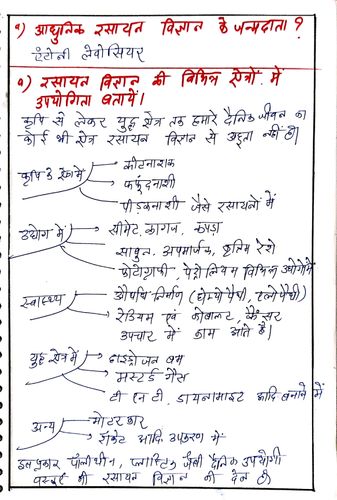 १) आधुनिक रसायन विज्ञान के जन्मदाता ?
एंटोनी लेवोसियर
२) रसायन विज्ञान की विभिन्न क्षेत्रों में
उपयोगिता बतायें।
कृषि से लेकर युद्ध क्षेत्र तक हमारे दैनिक जीवन का
कोई भी क्षेत्र रसायन विज्ञान से अछूता नहीं है।
कृषि के क्षेत्र में
कीटनाशक
फफूंदनाशी
पीड़कनाशी जैसे रसायनों में
उद्योग में
सीमेंट, कागज, कपड़ा
साबुन, अपमार्जक, कृत्रिम रेशे
फोटोग्राफी, पेट्रोलियम विभिन्न उद्योगों में
स्वास्थ्य
औषधि निर्माण (होम्योपैथी, एलोपैथी)
रेडियम एवं कोबाल्ट, कैंसर
उपचार में काम आते हैं।
युद्ध क्षेत्र में
हाइड्रोजन बम
मस्टर्ड गैस
टी एन टी, डायनामाइट आदि बनाने में
अन्य
मोटर कार
रॉकेट आदि उपकरण में
इस प्रकार पॉलीथीन, प्लास्टिक जैसी दैनिक उपयोगी
वस्तुएं भी रसायन विज्ञान की देन हैं।